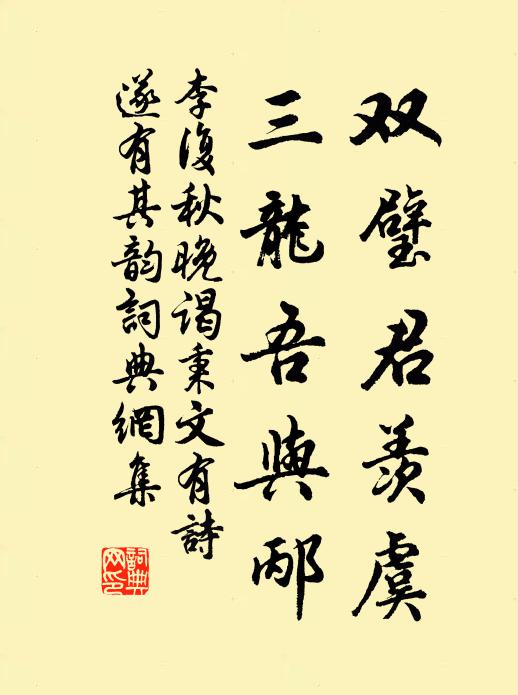 双璧君羡虞
三龍吾與邴
李復秋晚谒秉文有詩
遂有其韵詞典網集
詞典网印